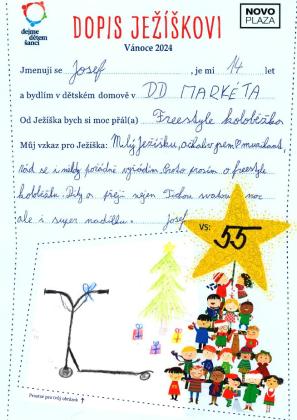 dejme
dětem
šanci
DOPIS JEŽÍŠKOVI
NOVO
PLAZA
Vánoce 2024
Jmenuji se Josef, je mi 14 let
a bydlím v dětském domově v DD MARKÉTA
Od Ježíška bych si moc přál(a) Freestyle koloběžka
Můj vzkaz pro Ježíška: Milý Ježíšku, ačkoliv jsem muzikant,
rád se i někdy pořádně vyřádím. Proto prosím o freestyle
koloběžku. Díky a přeji nejen Tichou svatou noc
ale i super nadílku. Josef
VS: 55
Prostor pro tvůj obrázek